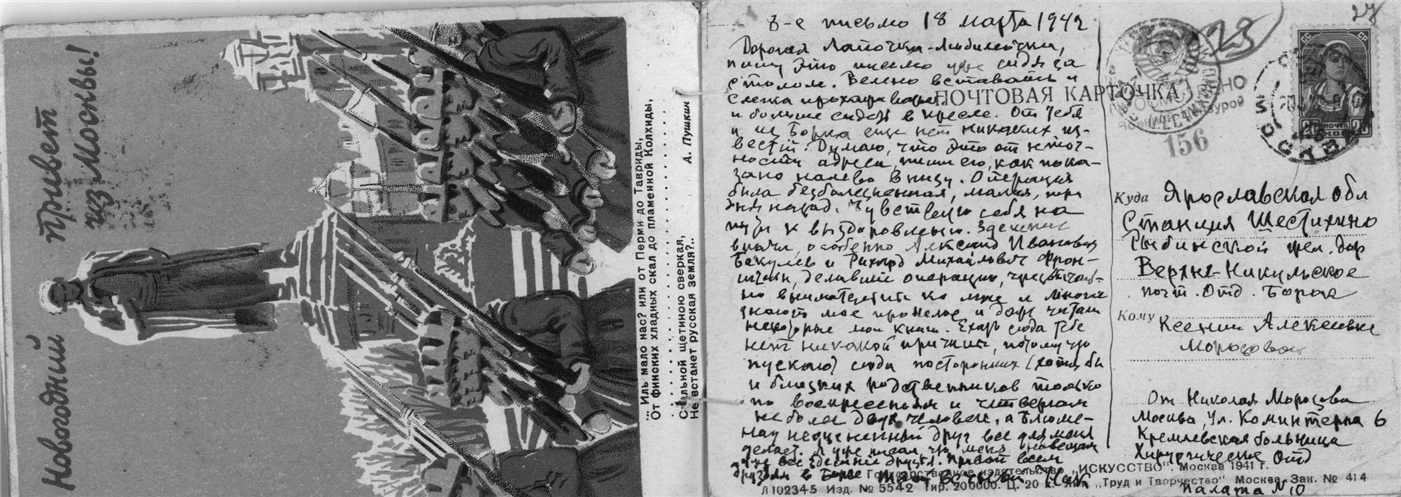 Новогодний привет из Москвы!
... Иль мало нас? или от Перми до Тавриды,
От финских хладных скал до пламенной Колхиды,
Стальной щетиною сверкая,
Не встанет русская земля?..
А. Пушкин
3-е письмо 18 марта 1942
Дорогая Лапочка-Любилочка,
пишу это письмо уже сидя за
столом. Велено вставать и
слегка прохаживаться
и больше сидеть в кресле. От тебя
и из Борка еще нет никаких из-
вестий. Думаю, что это от неточ-
ности адреса, пиши его, как пока-
зано налево внизу. Операция
была безболезненная, малая, три
дня назад. Чувствую себя на
пути к выздоровлению. Здешние
врачи, особенно Александр Иванович
Бакулев и Рихард Михайлович
делавший операцию, чрезвычай-
но внимательны ко мне и многие
знают мое прошлое и даже читали
некоторые мои книги. Ехать сюда тебе
нет никакой причины, потому что
пускают сюда посторонних (хотя бы
и близких родственников) только
по воскресеньям и четвергам
не более двух человек, а
неоцененный друг все для меня
делает. Я уже писал, что меня навещают
все здешние друзья. Привет всем
друзьям в Борке. Твой Ник
ПОЧТОВАЯ КАРТОЧКА
23
27
156
20 20
МОСКВА
Куда Ярославская обл
Станция Шестихино
Рыбинской жел. дор
Верхне-Никульское
почт. Отд. Борок
Кому Ксении Алексеевне
Морозовой
От Николая Морозова
Москва, Ул. Коминтерна 6
Кремлевская больница
Хирургическое Отд
Палата №10
Государственное издательство „ИСКУССТВО". Москва 1941 г.
Л102345 Изд. № 5542 Тир. 200000. Ц. 20 к. Тип. „Труд и Творчество" Москва. Зак. № 414